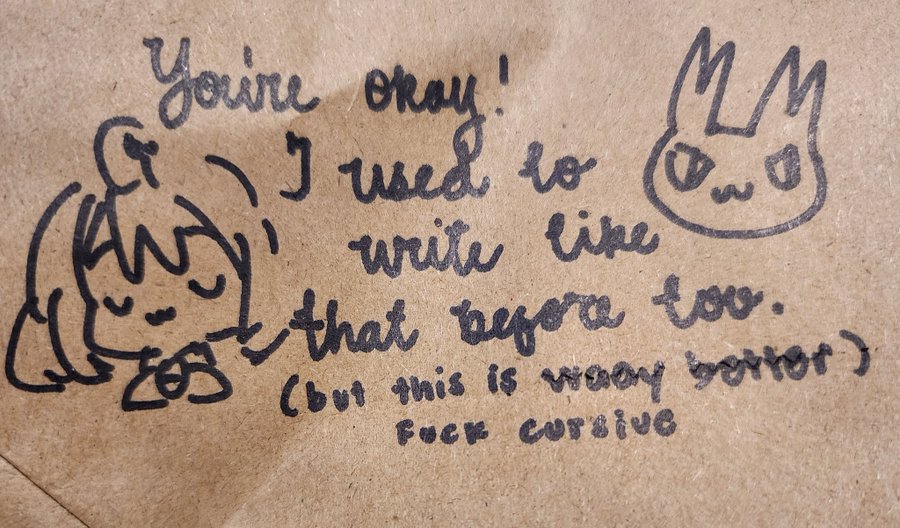 You're okay!
I used to
write like
that before too.
(but this is waay better)
FUCK cursive